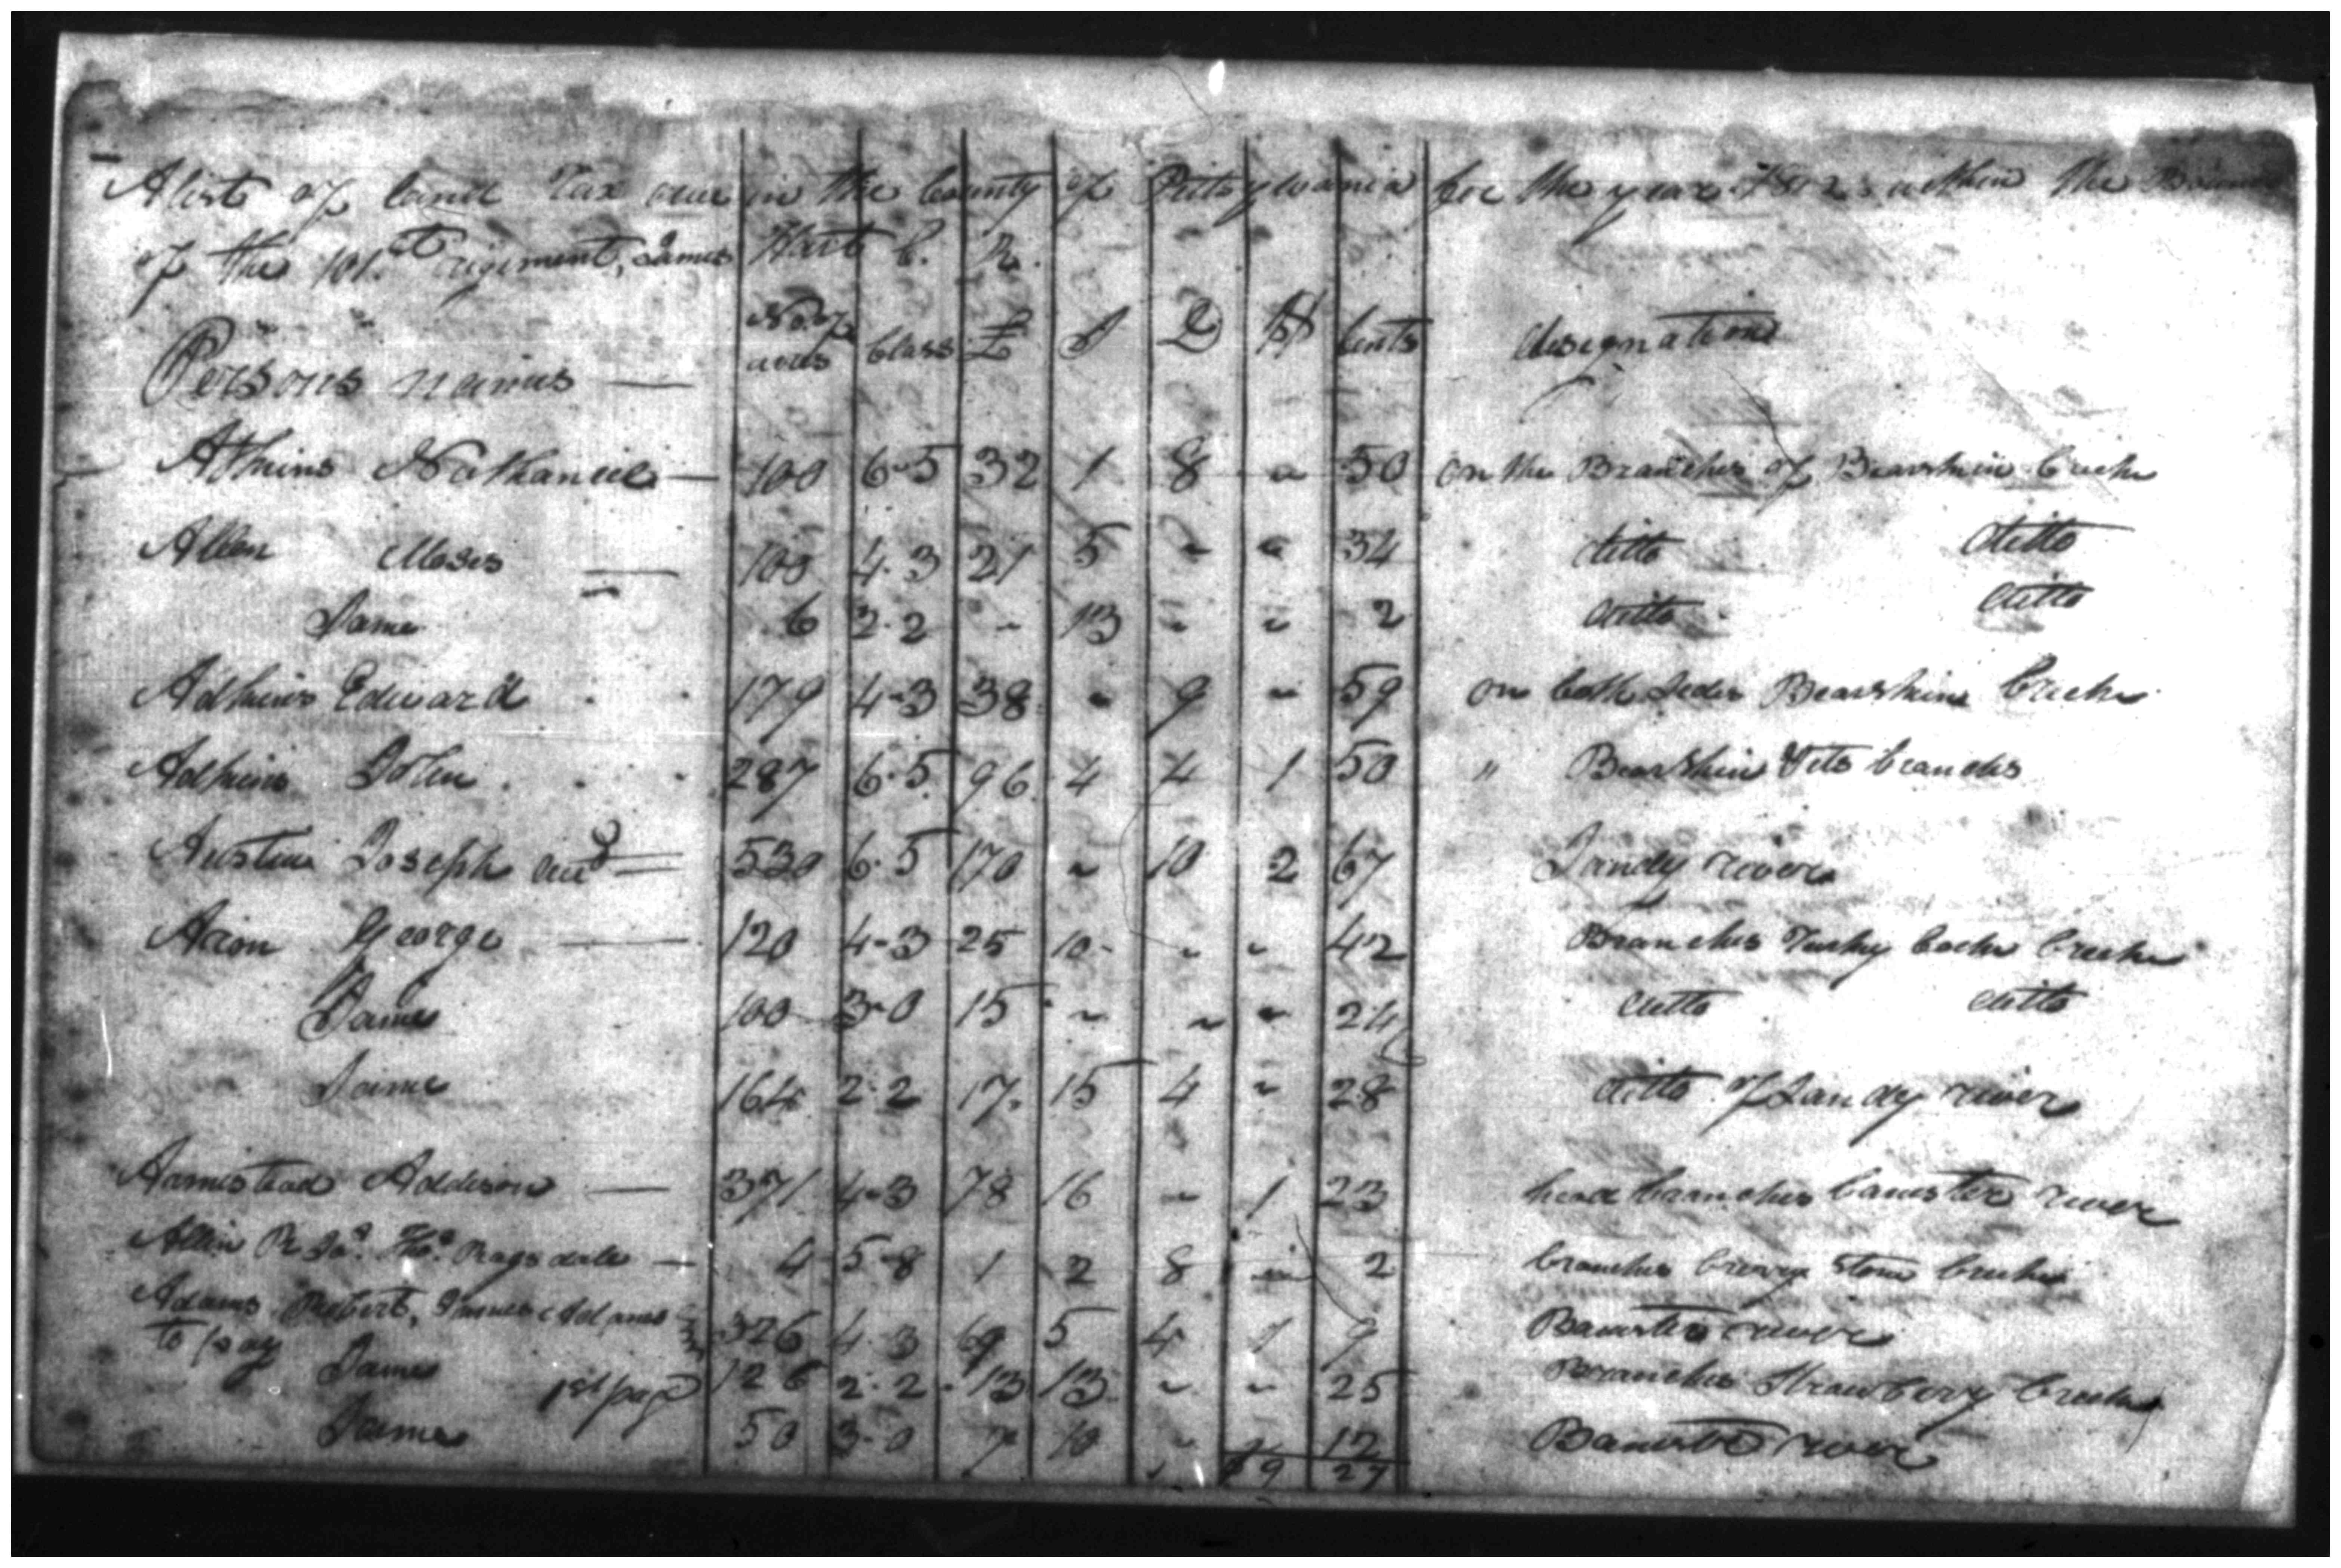 A list of land Tax due in the County of Pittsylvania for the year 1812 within the
of the 101.st regiment, James Hart C. R.
Persons names — No. of acres Class £ S D $ Cents designation
Atkins Nathaniel — 100 6-5 32 1 8 - 50 on the Branches of Bearskin Creek
Allen Moses — 100 4-3 21 5 - - 34 ditto ditto
Same 6 2-2 - 13 - - 2 ditto ditto
Adkins Edward 179 4-3 38 - 9 - 59 on both sides Bearskin Creek
Adkins John 287 6-5 96 4 4 1 50 " Bearskin & its branches
Austin Joseph 530 6-5 170 - 10 2 67 Sandy river
Aaron George — 120 4-3 25 10 - - 42 Branches Turkey Cock Creek
Same 100 3-0 15 - - - 24 ditto ditto
Same 164 2-2 17 15 4 - 28 ditto of Sandy river
Armistead Addison — 371 4-3 78 16 - 1 23 head branches banister river
Allin Thos. Ragsdale — 4 5-8 1 2 8 - 2 branches Cherry stone Creek
Adams Robert, James Adams 326 4-3 69 5 4 1 9 Banister river
to pay Same 1st page 126 2-2 13 13 - - 25 Branches Strawberry Creek
Same 50 3-0 7 10 - - 12 Banister river
$9 27